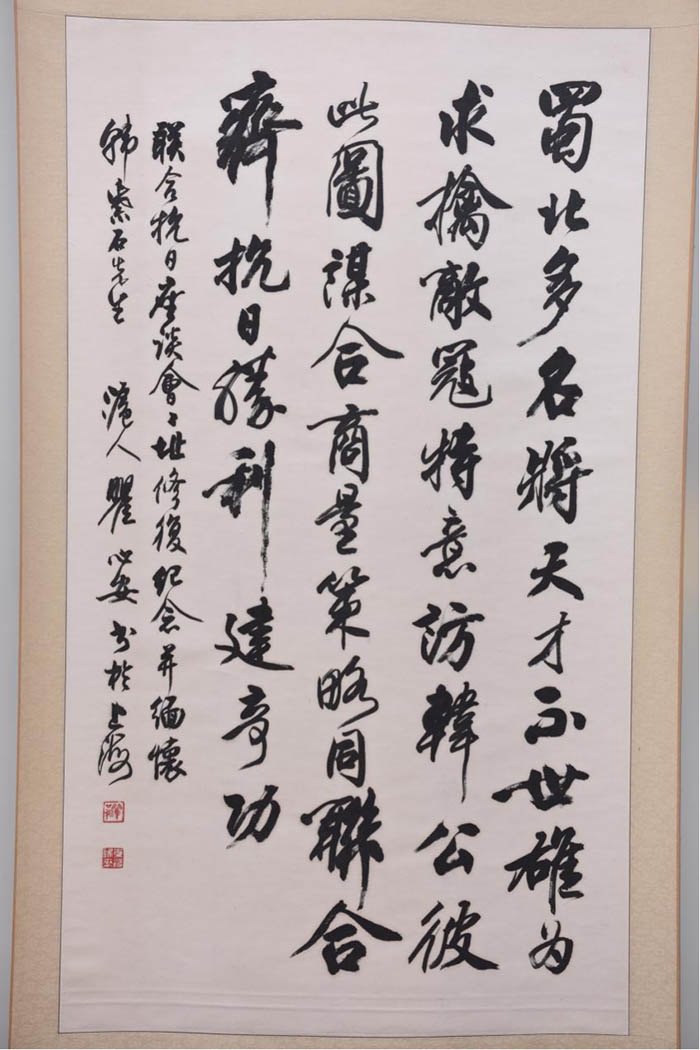 蜀北多名將天才不世雄为
求擒敵寇特意訪韓公彼
此圖謀合商量策略同聯合
齊抗日勝利建奇功
联合抗日座谈會々址修復纪念并緬懷
韩紫石先生 滬人瞿心安书於上海